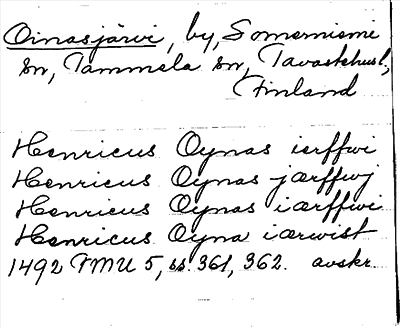 Oinasjärvi, by, Somerniemi
sn, Tammela sn, Tavastehus l.,
Finland
Henricus Oynas ierffwi
Henricus Oynas jærffwj
Henricus Oynas iærffwi
Henricus Oyna iærwist
1492 FMU 5, ss. 361, 362. avskr.